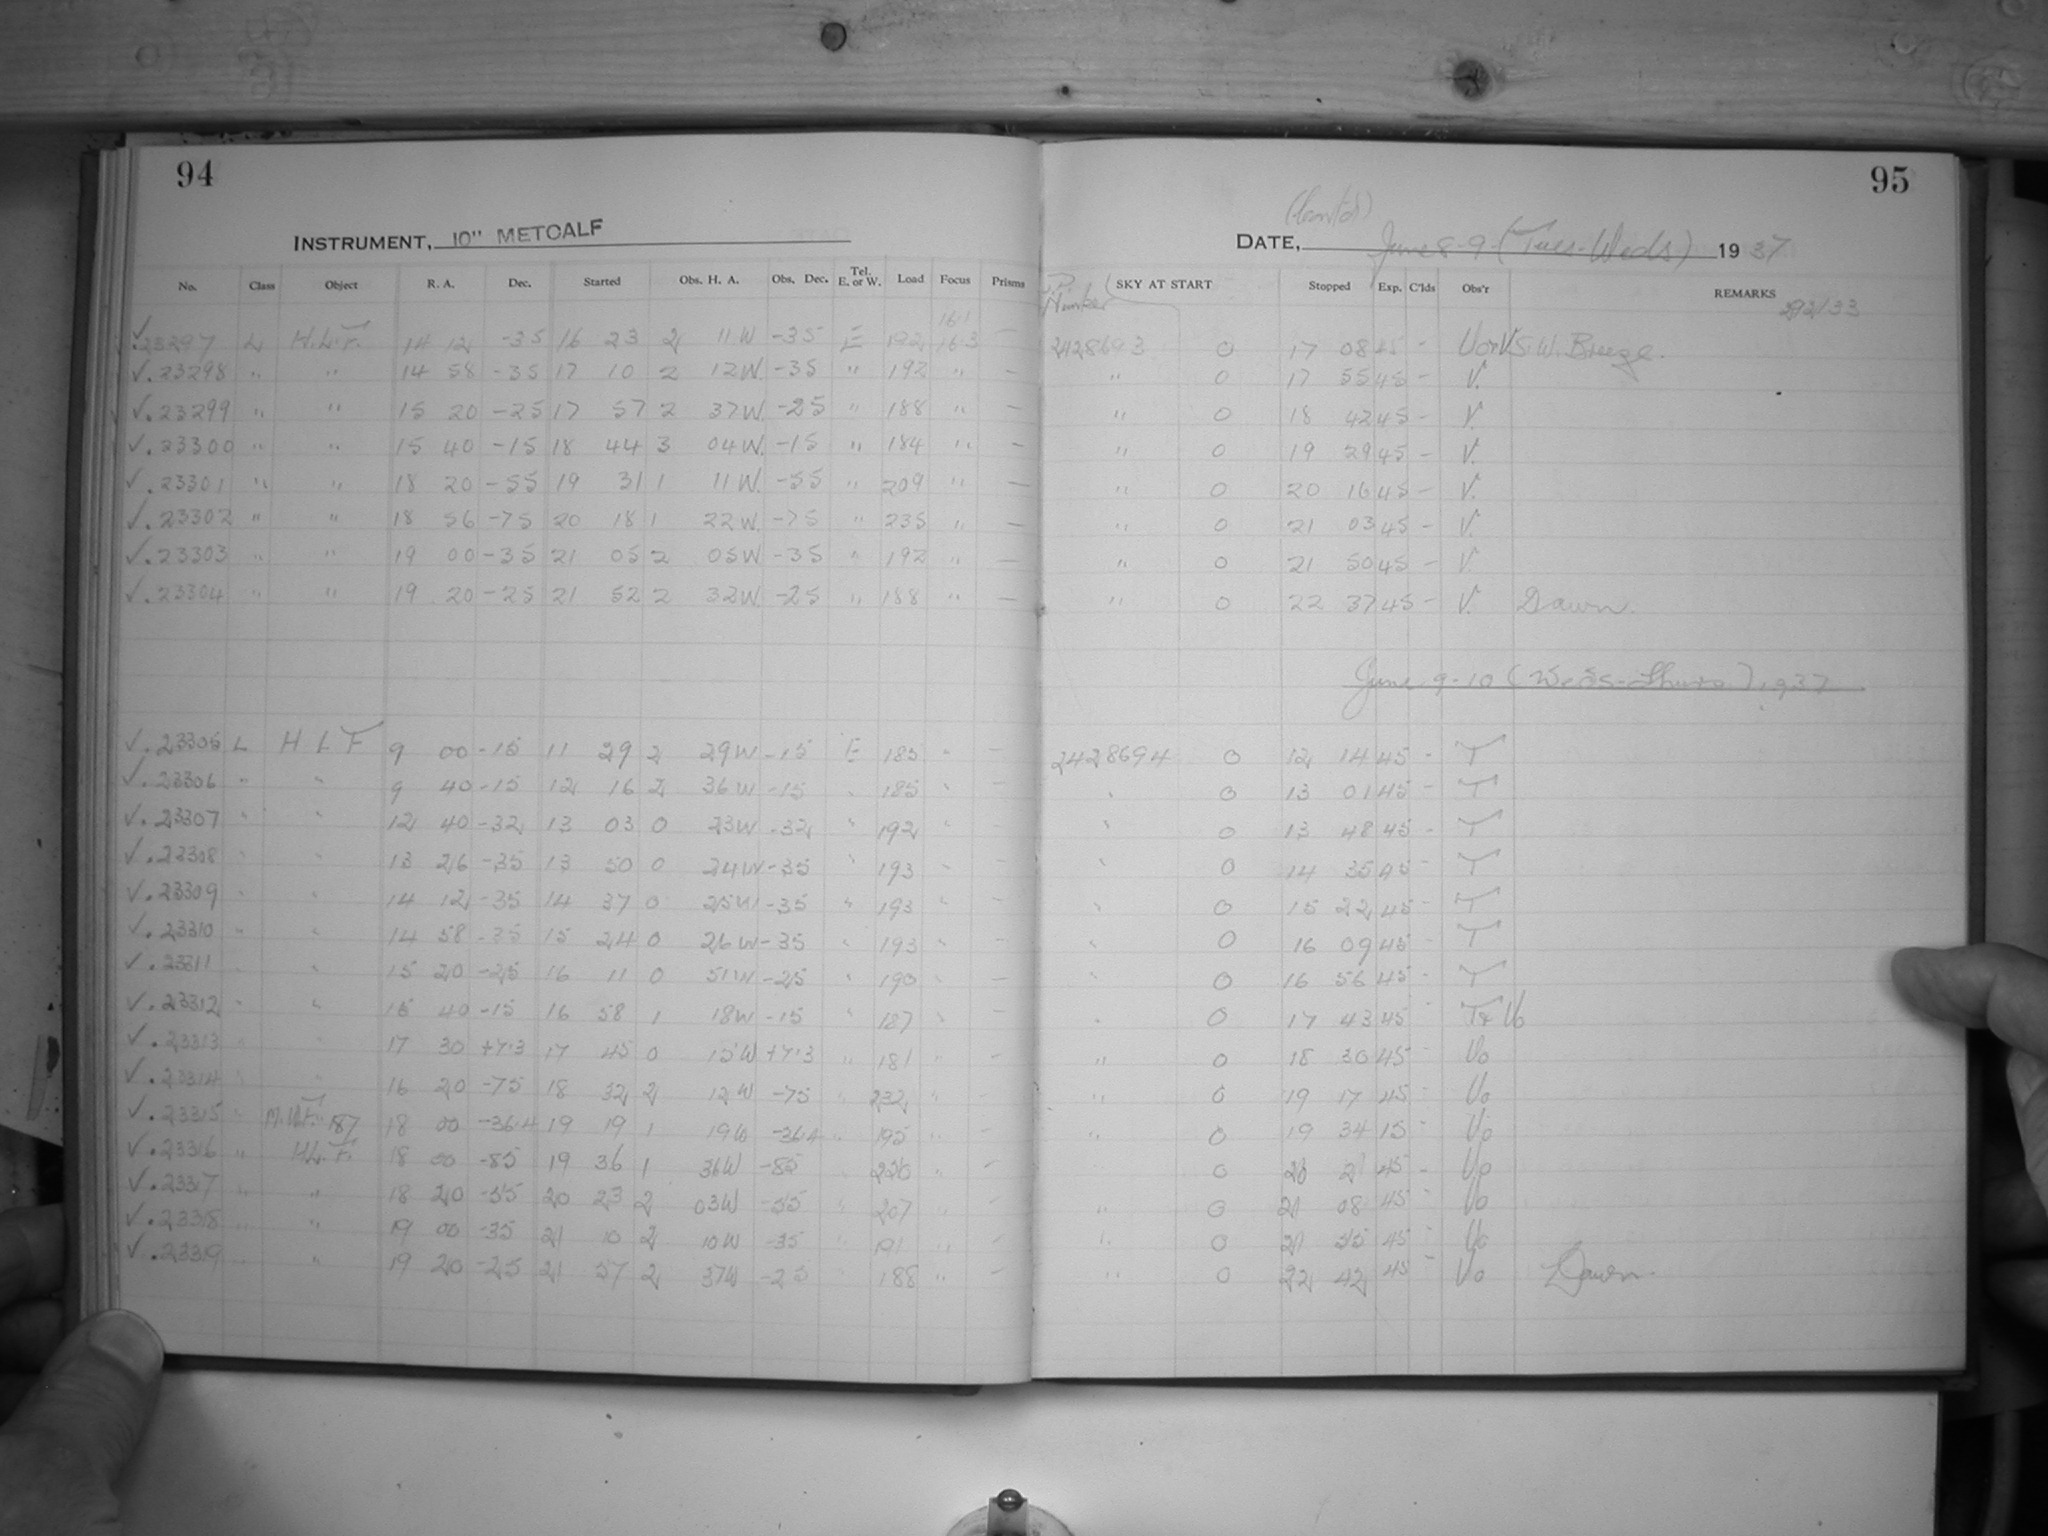 94
INSTRUMENT, 10" METCALF
No. Class Object R. A. Dec. Started Obs. H. A. Obs. Dec. Tel. E. or W. Load Focus Prisms
16.1
✓.23297 L H.L.F. 14 12 -35 16 23 2 11W -35 E 192 16.3 —
✓.23298 " " 14 58 -35 17 10 2 12W. -35 " 192 " —
✓.23299 " " 15 20 -25 17 57 2 37W. -25 " 188 " —
✓.23300 " " 15 40 -15 18 44 3 04W. -15 " 184 " —
✓.23301 " " 18 20 -55 19 31 1 11W. -55 " 209 " —
✓.23302 " " 18 56 -75 20 18 1 22W. -75 " 235 " —
✓.23303 " " 19 00 -35 21 05 2 05W -35 " 192 " —
✓.23304 " " 19 20 -25 21 52 2 32W -25 " 188 " —
✓.23305 L H L F 9 00 -15 11 29 2 29W -15 E 185 " —
✓.23306 " " 9 40 -15 12 16 2 36W -15 " 185 " —
✓.23307 " " 12 40 -32 13 03 0 23W -32 " 192 " —
✓.23308 " " 13 26 -35 13 50 0 24W -35 " 193 " —
✓.23309 " " 14 12 -35 14 37 0 25W -35 " 193 " —
✓.23310 " " 14 58 -35 15 24 0 26W -35 " 193 " —
✓.23311 " " 15 20 -25 16 11 0 51W -25 " 190 " —
✓.23312 " " 15 40 -15 16 58 1 18W -15 " 187 " —
✓.23313 " " 17 30 +7.3 17 45 0 15W +7.3 " 181 " —
✓.23314 " " 16 20 -75 18 32 2 12W -75 " 232 " —
✓.23315 " M.W.F. 187 18 00 -36.4 19 19 1 19W -36.4 " 195 " —
✓.23316 " H.L.F. 18 00 -85 19 36 1 36W -85 " 250 " —
✓.23317 " " 18 20 -55 20 23 2 03W -55 " 207 " —
✓.23318 " " 19 00 -35 21 10 2 10W -35 " 191 " —
✓.23319 " " 19 20 -25 21 57 2 37W -25 " 188 " —
95
(Cont'd)
DATE, June 8-9-(Tues-Weds) 1937
J.D. Number SKY AT START Stopped Exp. C'lds Obs'r REMARKS
2428693 0 17 08 45 - S.W. Breeze.
" 0 17 55 45 - V.
" 0 18 42 45 - V.
" 0 19 29 45 - V.
" 0 20 16 45 - V.
" 0 21 03 45 - V.
" 0 21 50 45 - V.
" 0 22 37 45 - V. Dawn.
June 9-10 (Weds-Thurs) 1937
2428694 0 12 14 45 - T
" 0 13 01 45 - T
" 0 13 48 45 - T
" 0 14 35 45 - T
" 0 15 22 45 - T
" 0 16 09 45 - T
" 0 16 56 45 - T
" 0 17 43 45 - T & Vo
" 0 18 30 45 - Vo
" 0 19 17 45 - Vo
" 0 19 34 15 - Vo
0 20 21 45 - Vo
" 0 21 08 45 - Vo
" 0 21 55 45 - Vo
" 0 22 42 45 - Vo Dawn.